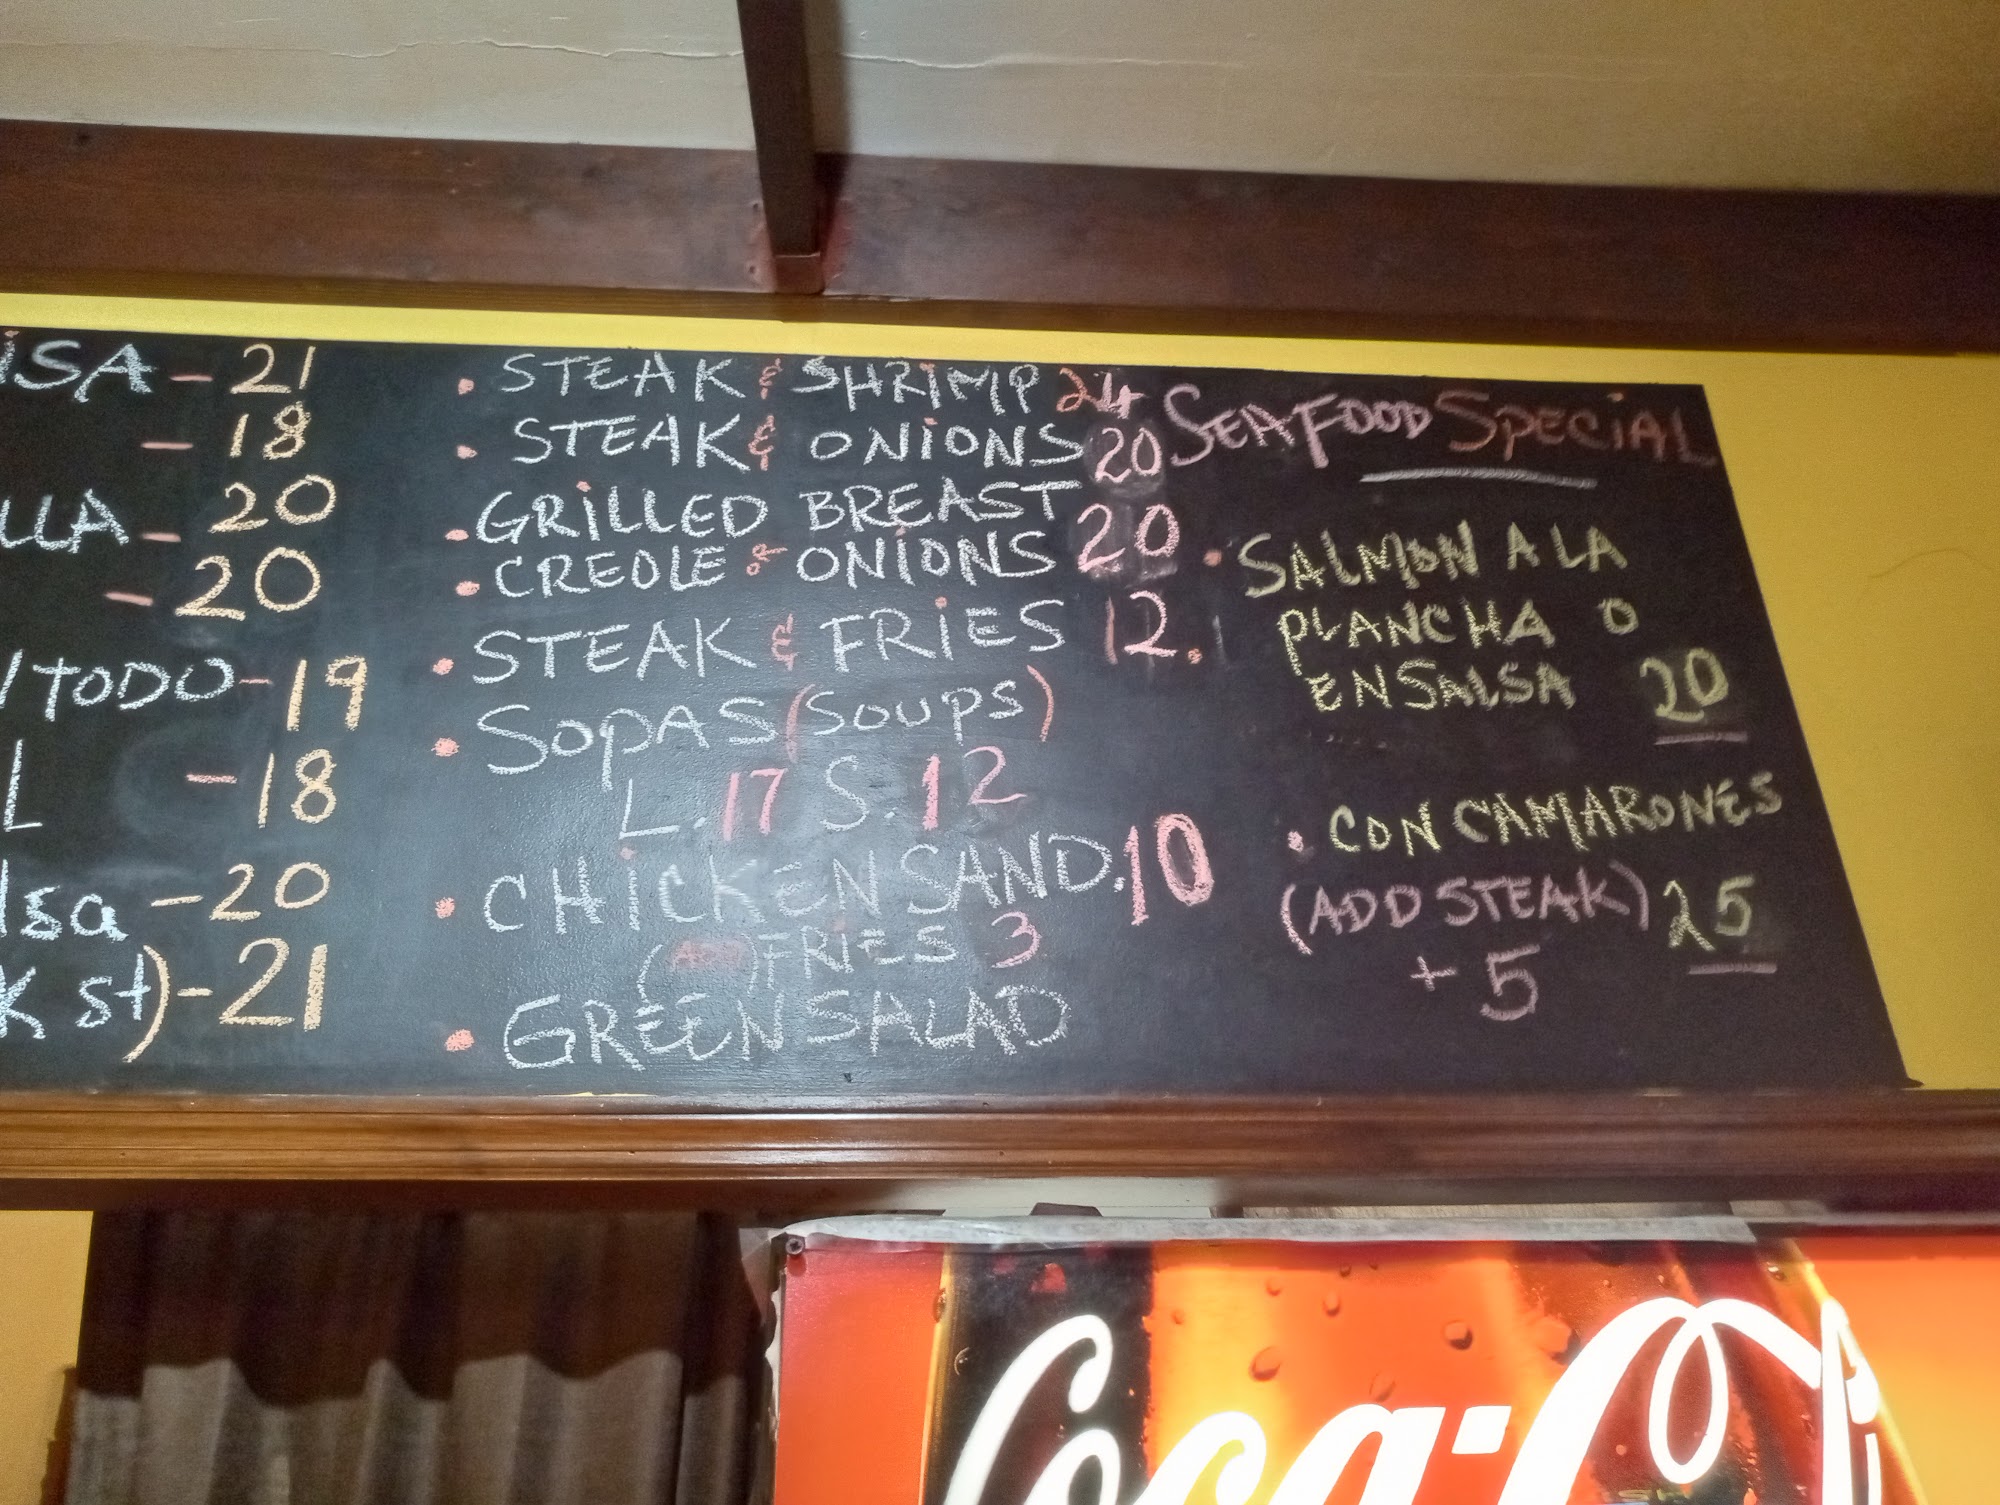 ISA - 21
- 18
LLA - 20
- 20
/ TODO - 19
L - 18
lsa - 20
K st) - 21
• STEAK & SHRiMP 24
• STEAK & ONiONS 20
• GRiLLED BREAST
• CREOLE & ONiONS 20
• STEAK & FRiES 12.
• SOPAS (SOUPS)
L. 17 S. 12
• CHiCKEN SAND. 10
(ADD) FRiES 3
• GREEN SALAD
SEAFOOD SPECiAL
• SALMON A LA
PLANCHA O
EN SALSA 20
• CON CAMARONES
(ADD STEAK) 25
+ 5
Coca-C